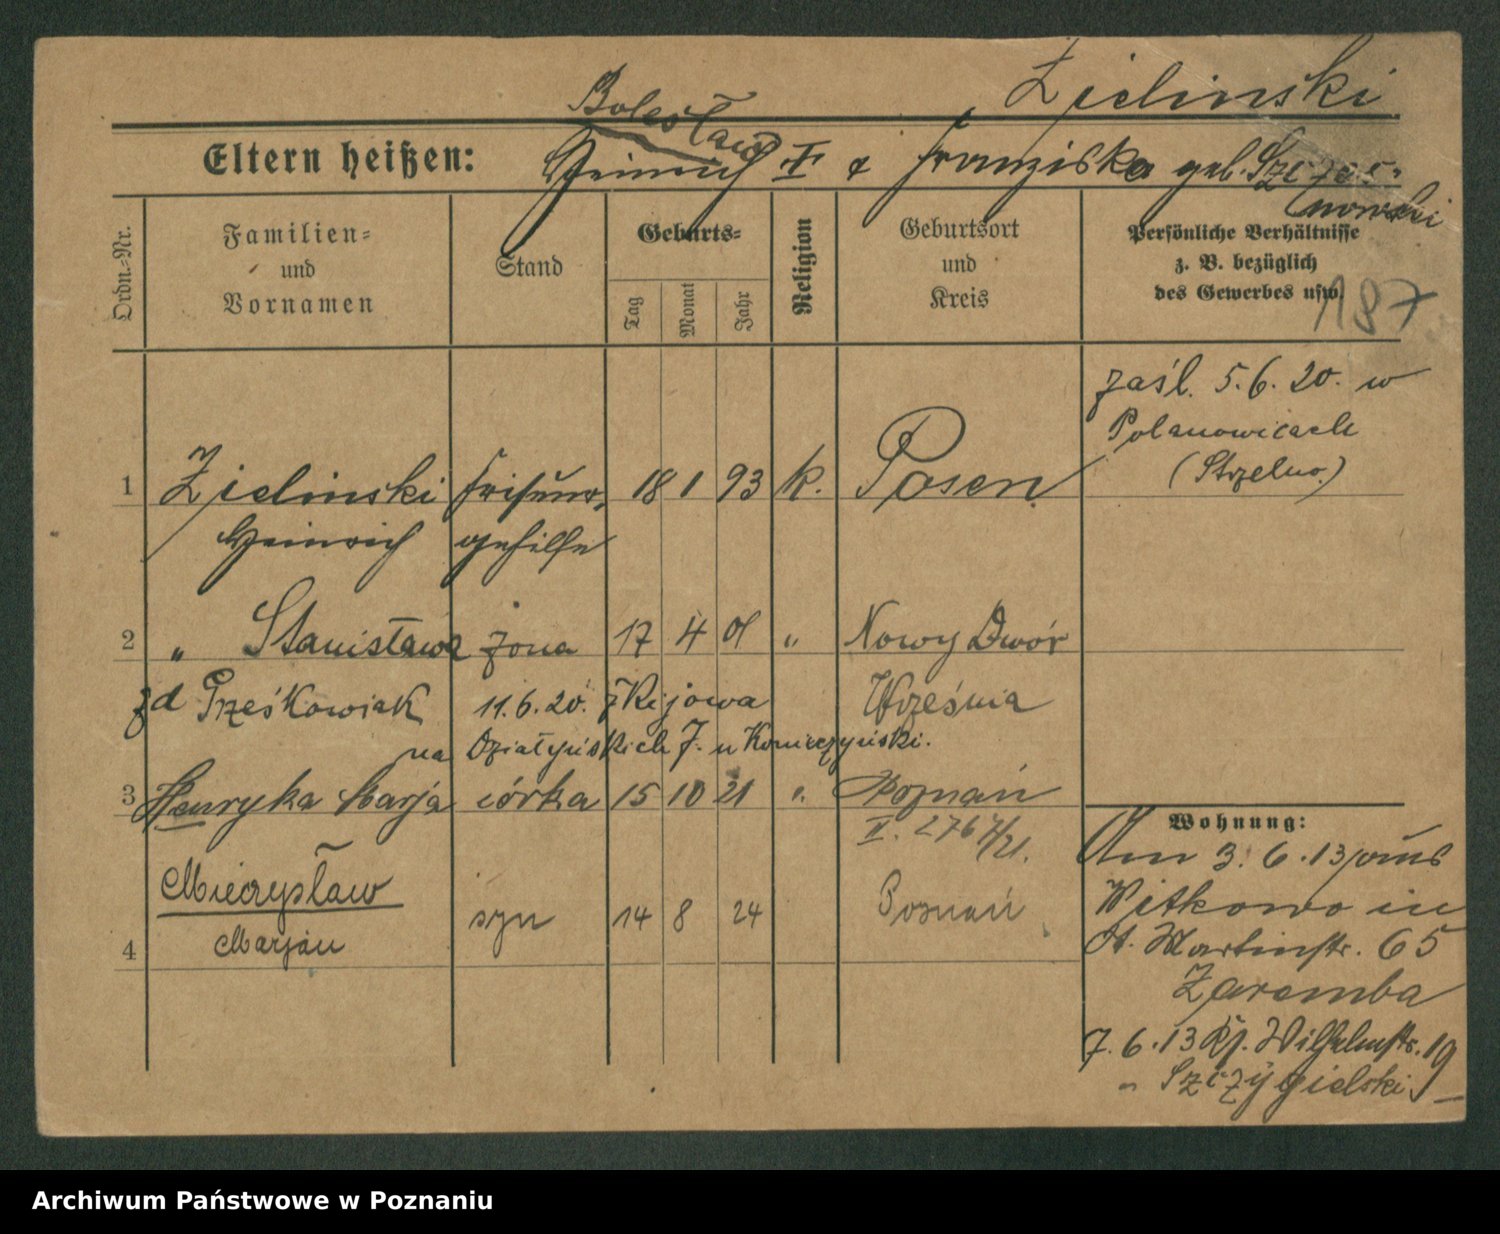 Zielinski
Bolesław
Eltern heißen: Heinrich † & Franziska geb. Szczes-
nowski
Ordn.-Nr.
Familien-
und
Vornamen
Stand
Geburts-
Tag
Monat
Jahr
Religion
Geburtsort
und
Kreis
Persönliche Verhältnisse
z. B. bezüglich
des Gewerbes usw.
187
zaśl. 5.6.20. w
Polanowicach
(Strzelno.)
1 Zielinski Friseur- 18 1 93 k. Posen
Heinrich gehilfe
2 " Stanisława żona 17 4 01 " Nowy Dwór
zd Grześkowiak 11.6.20. z Kijowa Września
na Działyńskich 7. u Konieczyński.
3 Henryka Marja córka 15 10 21 ". Poznań
II. 276 4/21.
Mieczysław
4 Marjan syn 14 8 24 Poznań
Wohnung:
Am 3.6.13 aus
Witkowo in
St. Martinstr. 65
Zaremba
7.6.13 Kf. Wilhelmstr. 19
" Szczygielski
Archiwum Państwowe w Poznaniu